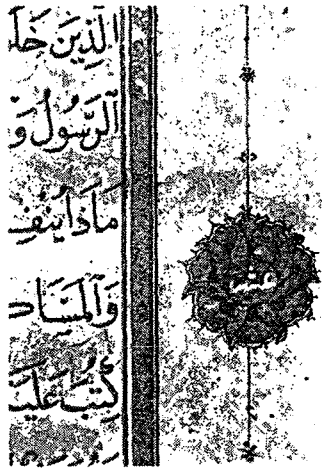 الَّذِينَ خَلَ
الرَّسُولُ وَ
مَاذَا يُنْفِ
وَالْمَسَاكِ
كُتِبَ عَلَيْ